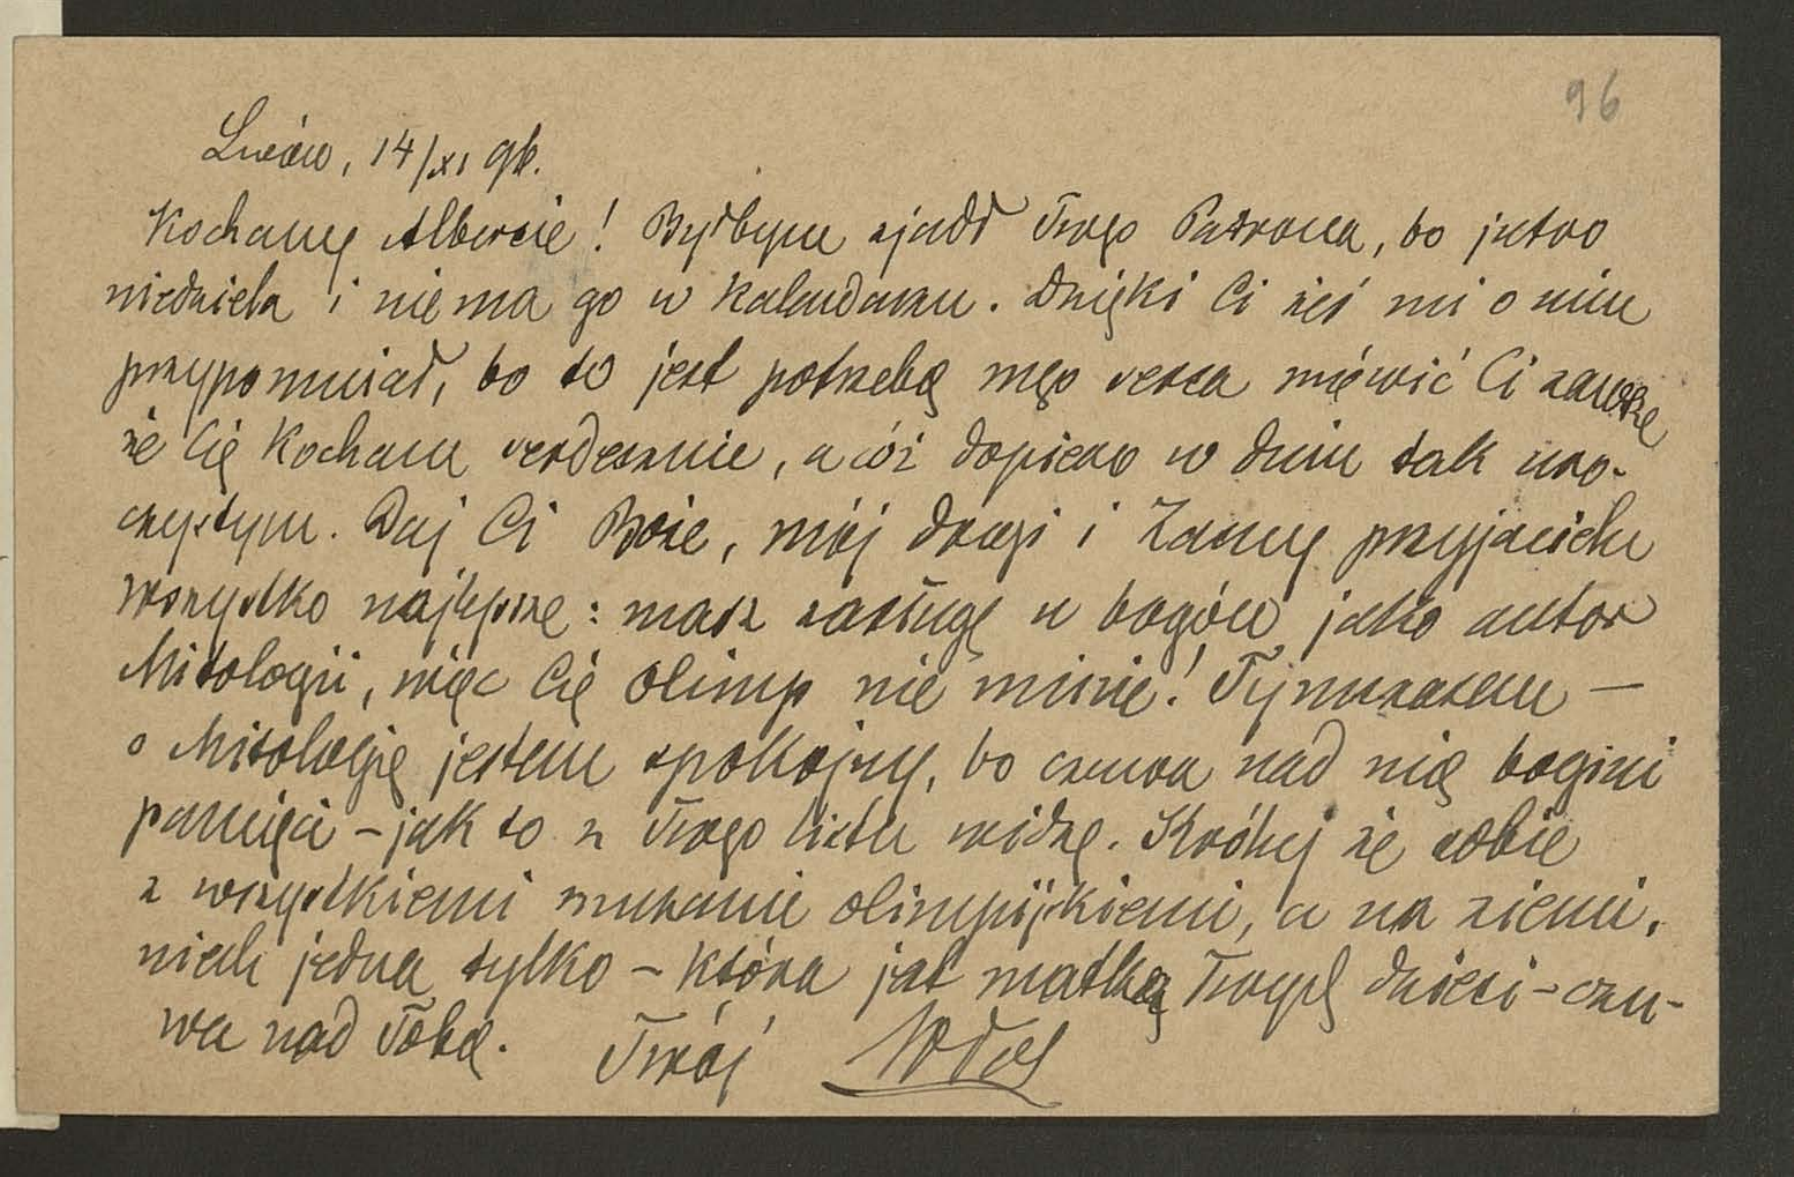 96
Lwów, 14/XI 96.
Kochany Albercie! Byłbym zjadł Twego Patrona, bo jutro
niedziela i niema go w kalendarzu. Dzięki Ci żeś mi o nim
przypomniał, bo to jest potrzebą mego serca mówić Ci zawsze
że Cię kocham serdecznie, a cóż dopiero w dniu tak uro-
czystym. Daj Ci Boże, mój drogi i zacny przyjacielu
wszystko najlepsze: masz zasługę u bogów jako autor
Mitologii, więc Cię Olimp nie minie! Tymczasem —
o Mitologię jestem spokojny, bo czuwa nad nią bogini
pamięci – jak to z Twego listu widzę. Króluj że sobie
z wszystkiemi muzami olimpijskiemi, a na ziemi,
niech jedna tylko – która jest matką Twojej dzieci – czu-
wa nad Tobą. Twój